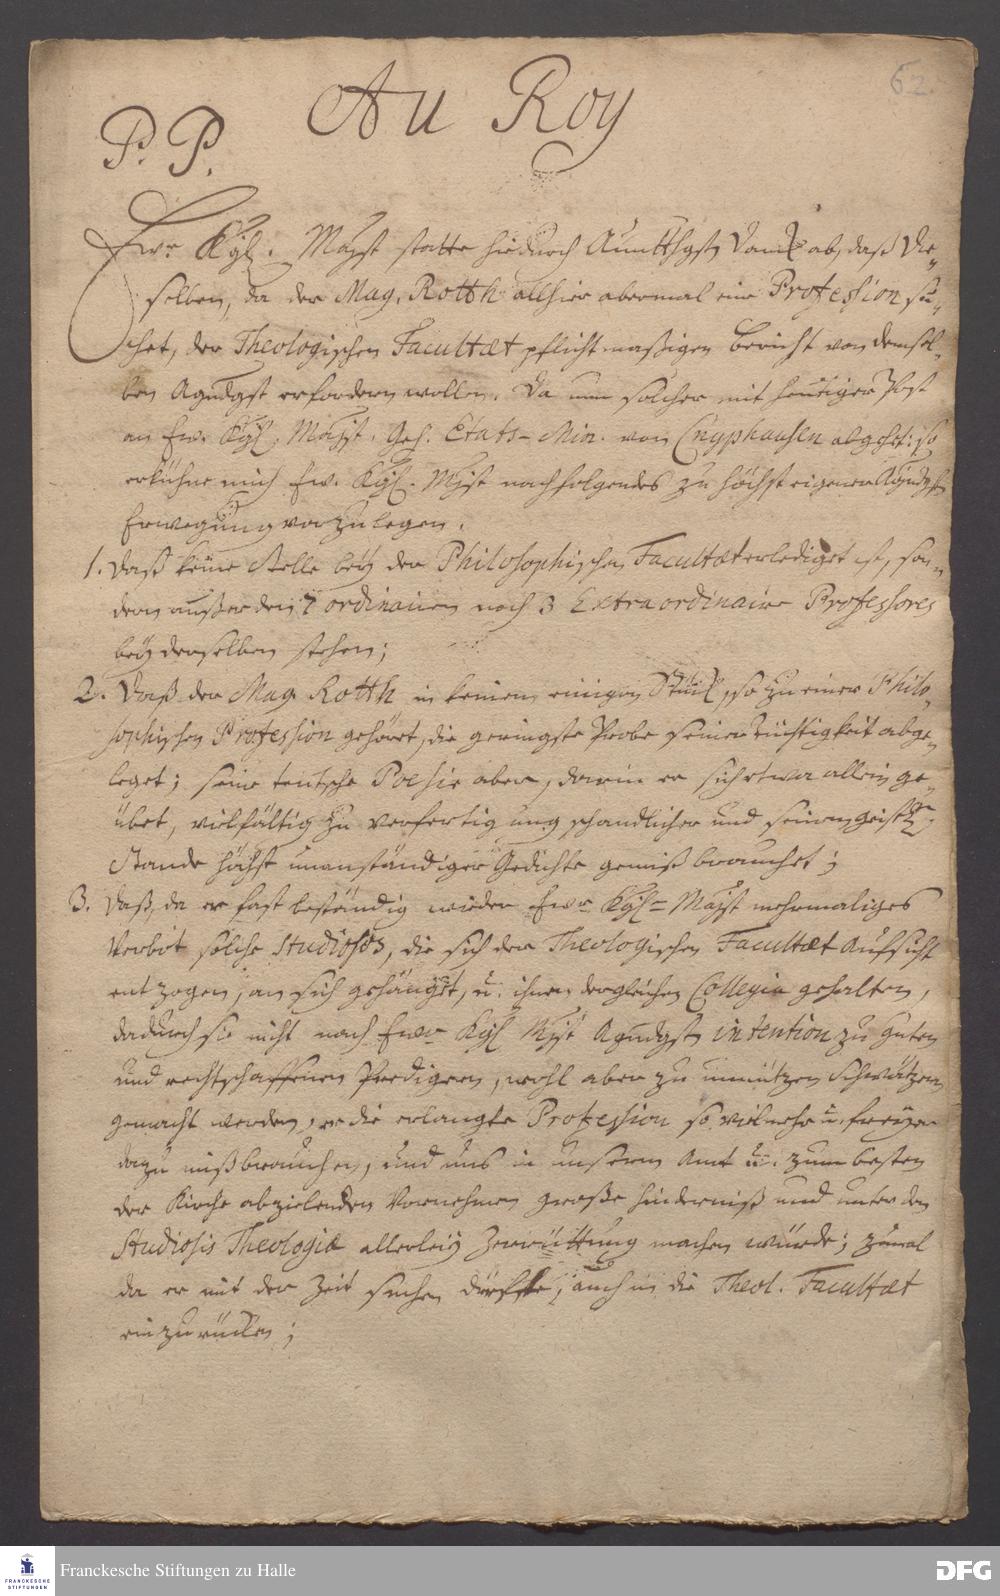 62.
Au Roy
P. P.
Ewr Kgl. Majst statte hiedurch Auntthgst Danck ab, daß Die-
selben, da der Mag. Rotth allhier abermal eine Profession su-
chet, der Theologischen Facultæt pflichtmaßigen Bericht von demsel-
ben Agndgst erfordern wollen. Da nun solcher mit heutiger Post
an Ew. Kgl. Majst. Geh. Etats-Min. von Cnyphausen abgehet: so
erkühne mich Ew. Kgl. Mjst nachfolgendes zu höchst eigener Agndgst
Erwegung vorzulegen.
1. Daß keine Stelle bey der Philosophischen Facultæt erlediget ist, son-
dern außer den 7 ordinairen noch 3 Extraordinaire Professores
bey derselben stehen;
2. Daß der Mag. Rotth in keinem einigen Stück, so zu einer Philo-
sophischen Profession gehöret, die geringste Probe seiner Tüchtigkeit abge-
leget; seine teutsche Poesie aber, darin er sich etwa allein ge-
übet, vielfältig zu verfertigung schandlicher und seinem geistl.
Stande höchst unanständiger Gedichte gemißbrauchet;
3. Daß, da er fast beständig wieder Ewr Kgl- Majst mehrmaliges
Verbot solche Studiosos, die sich der Theologischen Facultæt Aufsicht
entzogen, an sich gehänget, u. ihnen dergleichen Collegia gehalten,
dadurch sie nicht nach Ewr Kgl Mjst Agndgst intention zu guten
und rechtschaffenen Predigern, wohl aber zu unnützen Schwätzern
gemacht werden, er die erlangte Profession so vielmehr u. freyer
dazu mißbrauchen, und uns in unserm Amt u. zum besten
der Kirche abzielenden Vornehmen große hinderniß und unter den
Studiosis Theologiæ allerley Zerrüttung machen würde; zumal
da er mit der Zeit suchen dürffte, auch in die Theol. Facultæt
einzurücken;
FRANCKESCHE STIFTUNGEN
Franckesche Stiftungen zu Halle
DFG